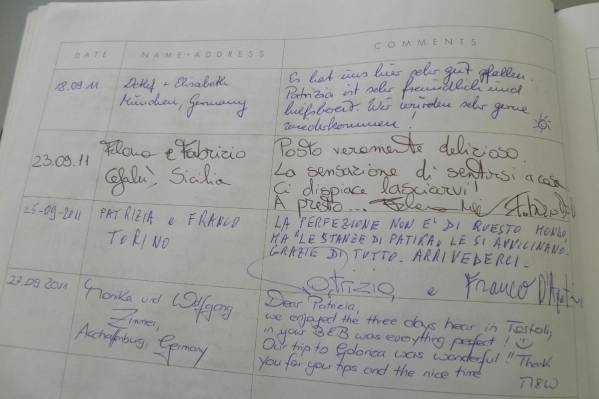 DATE NAME · ADDRESS COMMENTS
18.09.11
Detlef + Elisabeth
München, Germany
Es hat uns hier sehr gut gefallen.
Patrizia ist sehr freundlich und
hilfsbereit. Wir würden sehr gerne
wiederkommen!
23.09.11
Elena e Fabrizio
Cefalù, Sicilia
Posto veramente delizioso.
La sensazione di sentirsi a casa
Ci dispiace lasciarvi!
A presto...
25-09-2011
PATRIZIA e FRANCO
TORINO
LA PERFEZIONE NON E' DI QUESTO MONDO,
MA "LE STANZE DI PATRIZIA" LE SI AVVICINANO.
GRAZIE DI TUTTO. ARRIVEDERCI.
Patrizia e Franco
27.09.2011
Monika und Wolfgang
Zimmer,
Aschaffenburg, Germany
Dear Patrizia,
we enjoyed the three days hear in
in your B&B was everything perfect!
Our trip to was wonderful!! Thank
you for your tips and the nice time
M&W